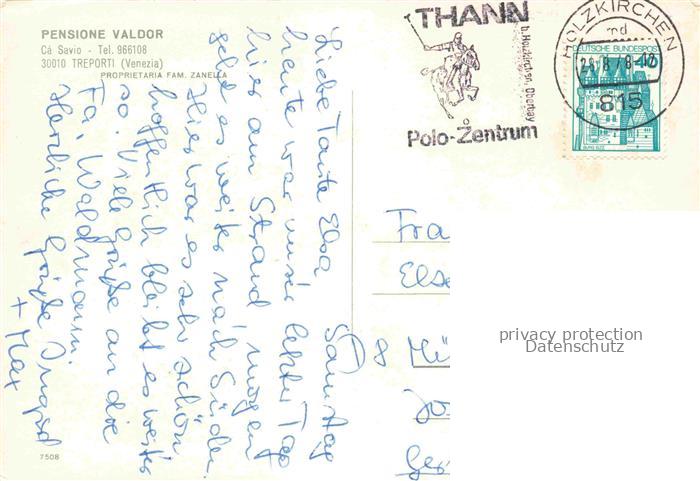 PENSIONE VALDOR
Cà Savio - Tel. 966108
30010 TREPORTI (Venezia)
PROPRIETARIA FAM. ZANELLA
THANN
b. Holzkirchen, Oberbay
Polo-Zentrum
HOLZKIRCHEN
815
DEUTSCHE BUNDESPOST
40
BURG ELTZ
Samstag
Liebe Tante Elsa
heute war unser letzter Tag
hier am Strand morgen
geht es weiter nach Süden.
Hier war es sehr schön
hoffentlich bleibt es weiter
so. Viele Grüße an die
Fa. Waldmann.
Herzliche Grüße Ingrid
+ Max
Fra
Else
8 Mü
Ger
privacy protection
Datenschutz
7508